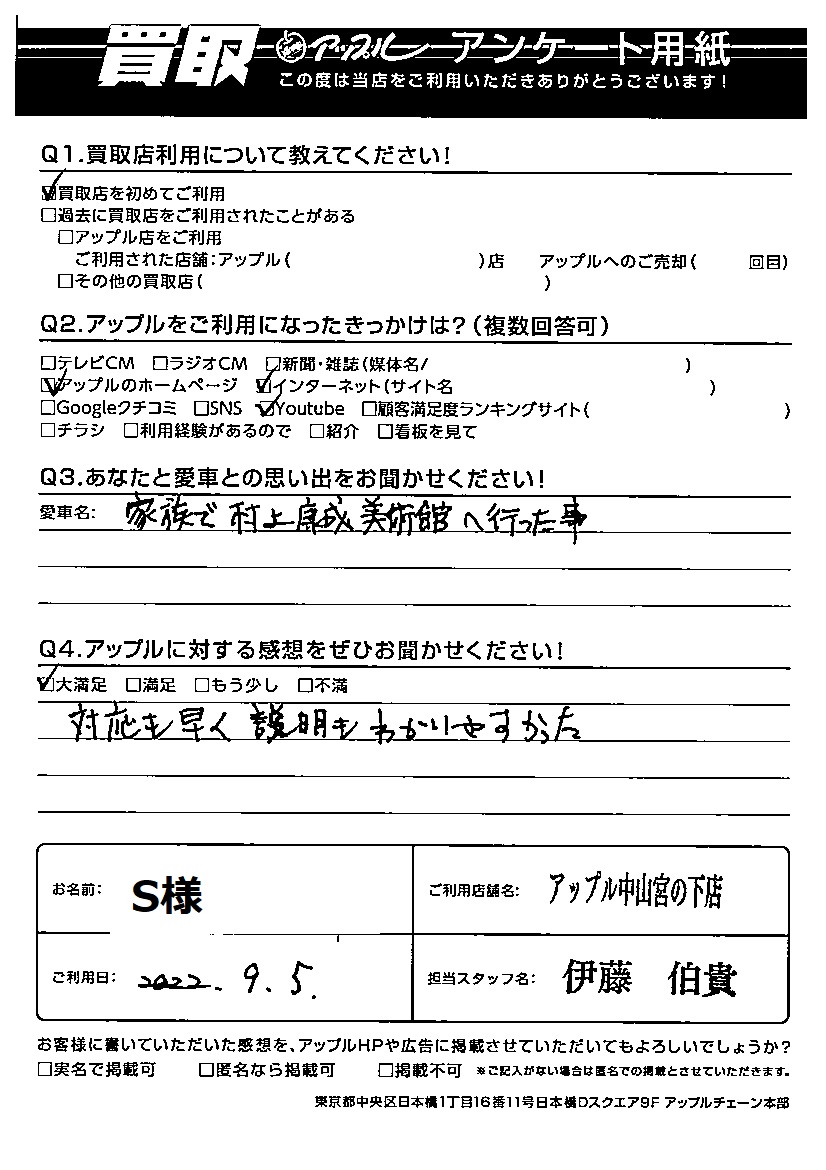 買取 アップル アンケート用紙
この度は当店をご利用いただきありがとうございます!
Q1.買取店利用について教えてください!
☑買取店を初めてご利用
□過去に買取店をご利用されたことがある
□アップル店をご利用
ご利用された店舗:アップル( )店 アップルへのご売却( 回目)
□その他の買取店( )
Q2.アップルをご利用になったきっかけは?(複数回答可)
□テレビCM □ラジオCM □新聞・雑誌(媒体名/ )
☑アップルのホームページ ☑インターネット(サイト名 )
□Googleクチコミ □SNS ☑Youtube □顧客満足度ランキングサイト( )
□チラシ □利用経験があるので □紹介 □看板を見て
Q3.あなたと愛車との思い出をお聞かせください!
愛車名: 家族で村上康成美術館へ行った事
Q4.アップルに対する感想をぜひお聞かせください!
☑大満足 □満足 □もう少し □不満
対応も早く説明もわかりやすかった
お名前: S様 ご利用店舗名: アップル中山宮の下店
ご利用日: 2022.9.5. 担当スタッフ名: 伊藤 伯貴
お客様に書いていただいた感想を、アップルHPや広告に掲載させていただいてもよろしいでしょうか?
□実名で掲載可 □匿名なら掲載可 □掲載不可 ※ご記入がない場合は匿名での掲載とさせていただきます。
東京都中央区日本橋1丁目16番11号日本橋Dスクエア9F アップルチェーン本部